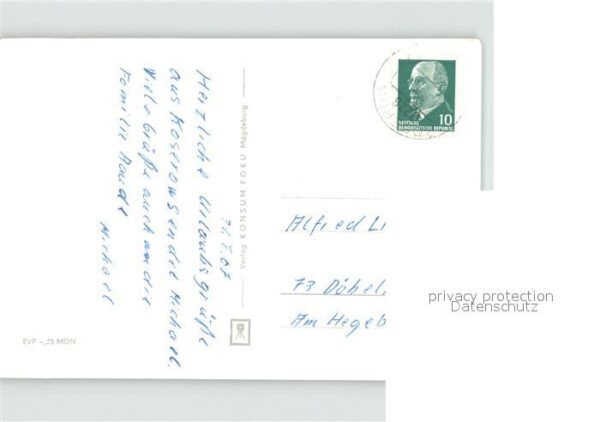 31.7.67
Herzliche Urlaubsgrüße
aus Koserow sendet Michael.
Viele Grüße auch an die
Familie
Michael
Verlag KONSUM FOKU Magdeburg
EVP -,25 MDN
10
DEUTSCHE
DEMOKRATISCHE REPUBLIK
Alfred Li
73 Döbel
Am Hegeb
privacy protection
Datenschutz